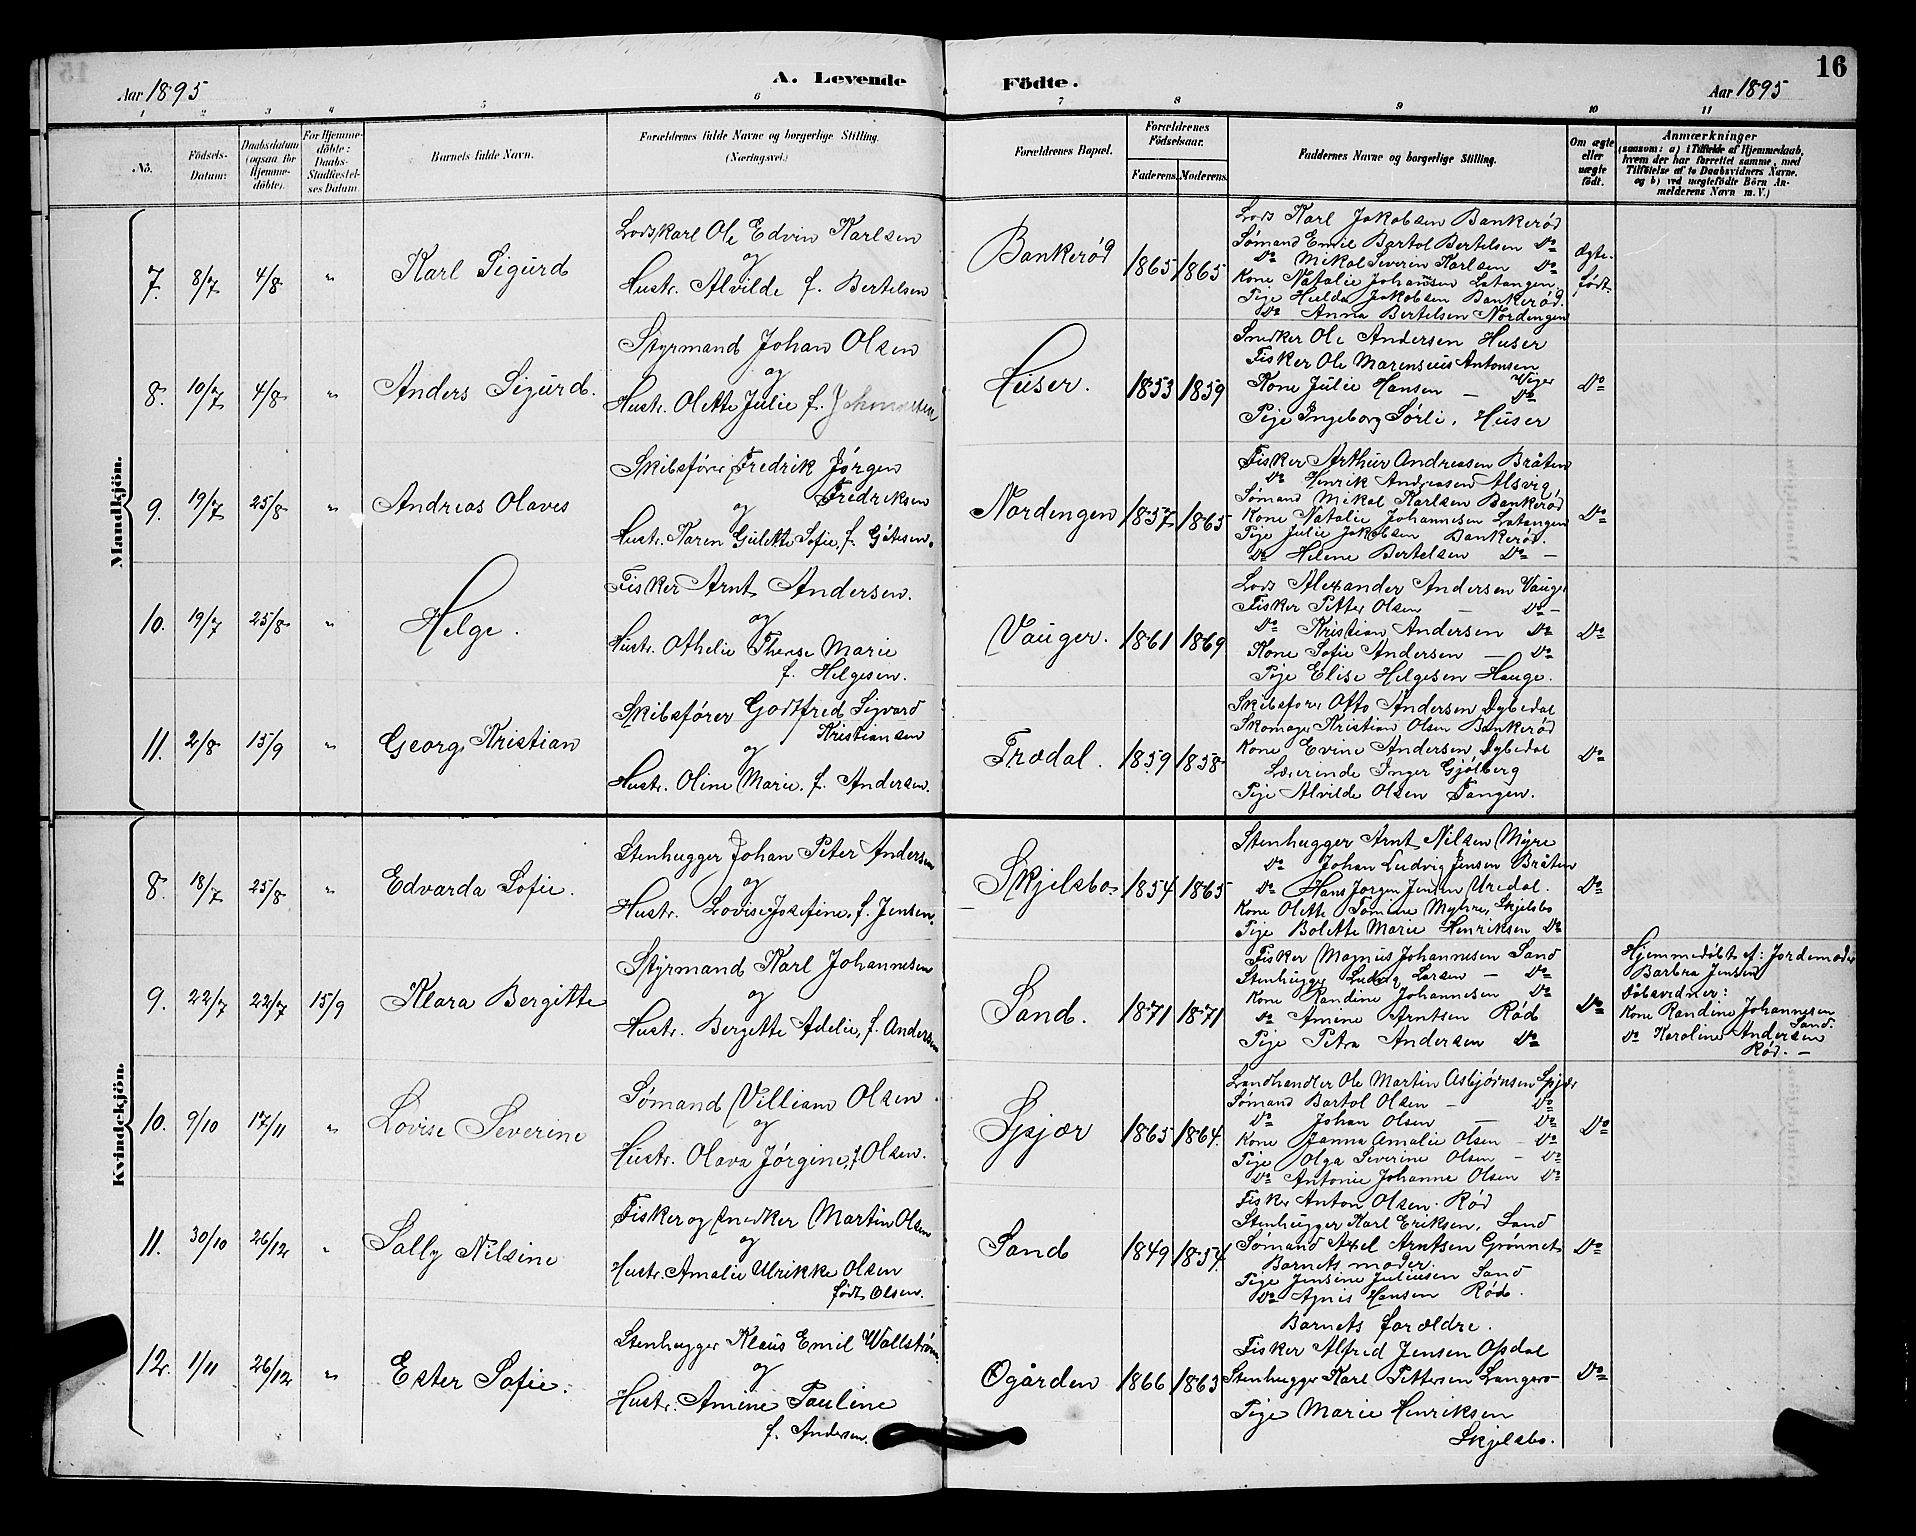 A. Levende Födte.
16
Aar 1895
Aar 1895
1 2 3 4 5 6 7 8 9 10 11
No.
Födsels-Datum:
Daabsdatum (ogsaa for Hjemmedöbte).
For Hjemmedöbte: Daabs-Stadfæstelses Datum.
Barnets fulde Navn.
Forældrenes fulde Navne og borgerlige Stilling. (Næringsvei.)
Forældrenes Bopæl.
Forældrenes Födselsaar.
Faderens. Moderens.
Faddernes Navne og borgerlige Stilling.
Om ægte eller uægte født.
Anmærkninger
(saasom: a) i Tilfælde af Hjemmedaab, hvem der har forrettet samme, med Tilföielse af to Daabsvidners Navne, og b) ved uægtefödte Börn Anmelderens Navn m. V.)
Mandkjön.
7. 8/7 4/8 " Karl Sigurd
Lodskarl Ole Edvin Karlsen
og
Hustr. Alvilde f. Bertelsen
Bankerød 1865 1865
Lods Karl Jakobsen Bankerød
Sømand Emil Bartol Bertelsen Do
Do Mikal Severin Karlsen Do
Kone Natalie Johansen Latangen
Pige Hulda Jakobsen Bankerød.
Do Anna Bertelsen Nordengen
Ægte-
født
8. 10/7 4/8 " Anders Sigurd.
Styrmand Johan Olsen
og
Hustr. Olette Julie f.
Huser. 1853 1859
Snedker Ole Andersen Huser
Fisker Ole Marensius Antonsen
Viger
Kone Julie Hansen — Do
Pige Ingeborg Sørli, Huser
Do
9. 19/7 25/8 " Andreas Olaves
Skibsfører Fredrik Jørgen
Fredriksen
og
Hustr. Karen Gulette Sofie, f. Gøtesen.
Nordengen 1857 1865
Fisker Arthur Andreasen Bråten
Do Henrik Andreasen Alsvig,
Sømand Mikal Karlsen Bankerød
Kone Natalie Johannesen Latangen
Pige Julie Jakobsen Bankerød.
Do Helene Bertelsen Do —
Do
10. 19/7 25/8 " Helge.
Fisker Arnt Andersen.
og
Hustr. Othelie Therese Marie
f. Helgesen.
Vauger. 1861 1869
Lods Alexander Andersen Vauger
Fisker Petter Olsen — Do —
Do Kristian Andersen Do
Kone Sofie Andersen — Do
Pige Elise Helgesen Hauge.
Do
11. 2/8 15/9 " Georg Kristian
Skibsfører Godtfred Sigvard
Kristiansen
og
Hustr. Oline Marie. f. Andersen.
Trødal. 1859 1858
Skibsfører Otto Andersen Dybedal
Skomager Kristian Olsen Bankerød
Kone Evine Andersen Dybedal
Lærerinde Inger Gjølberg
Pige Alvilde Olsen Tangen.
Do
Kvindekjön.
8. 18/7 25/8 " Edvarda Sofie.
Stenhugger Johan Peter Andersen
og
Hustr. Lovise Josefine, f. Jensen.
Skjelsbo 1854 1865
Stenhugger Arnt Nilsen Myre
Do Johan Ludvig Jensen Bråten
Do Hans Jørgen Jensen Uredal.
Kone Olette Tomine Myhre, Skjelsbo
Pige Bolette Marie Henriksen Do
Do
9. 22/7 22/7 15/9 Klara Bergitte
Styrmand Karl Johannesen
og
Hustr. Bergette Adelie, f. Andersen
Sand. 1871 1871
Fisker Magnus Johannesen Sand
Stenhugger Ludvig Larsen — Do
Kone Randine Johannesen Do
Do Amine Arntsen Rød
Pige Petra Andersen Do
Do
Hjemmedøbt af: Jordemoder
Barbra Jensen
Dåbsvidner:
Kone Randine Johannesen
Sand.
Do Karoline Andersen
Rød. —
10. 9/10 17/11 " Lovise Severine
Sømand Villiam Olsen
og
Hustr. Olava Jørgine, f Olsen.
Spjær 1865 1864.
Landhandler Ole Martin Asbjørnsen Spjær
Sømand Bartol Olsen — Do
Do Johan Olsen — Do
Kone Janna Amalie Olsen — Do
Pige Olga Severine Olsen — Do
Do Antonie Johanne Olsen Do
Do
11. 30/10 26/12 " Sally Nilsine
Fisker og Snedker Martin Olsen
og
Hustr. Amalie Ulrikke Olsen
født Olsen.
Sand 1849 1854.
Fisker Anton Olsen. Rød
Stenhugger Karl Eriksen, Sand
Sømand Axel Arntsen Grønnet
Barnets moder.
Pige Jensine Juliusen Sand
Do Agnis Hansen Rød.
Do
12. 1/11 26/12 " Ester Sofie.
Stenhugger Klaus Emil Wallstrøm.
og
Hustr. Amine Pauline
f. Andersen.
Ogården 1866 1863
Barnets forældre.
Fisker Alfred Jensen Opdal
Stenhugger Karl Pettersen Langerø
Pige Marie Henriksen
Skjelsbo.
Do